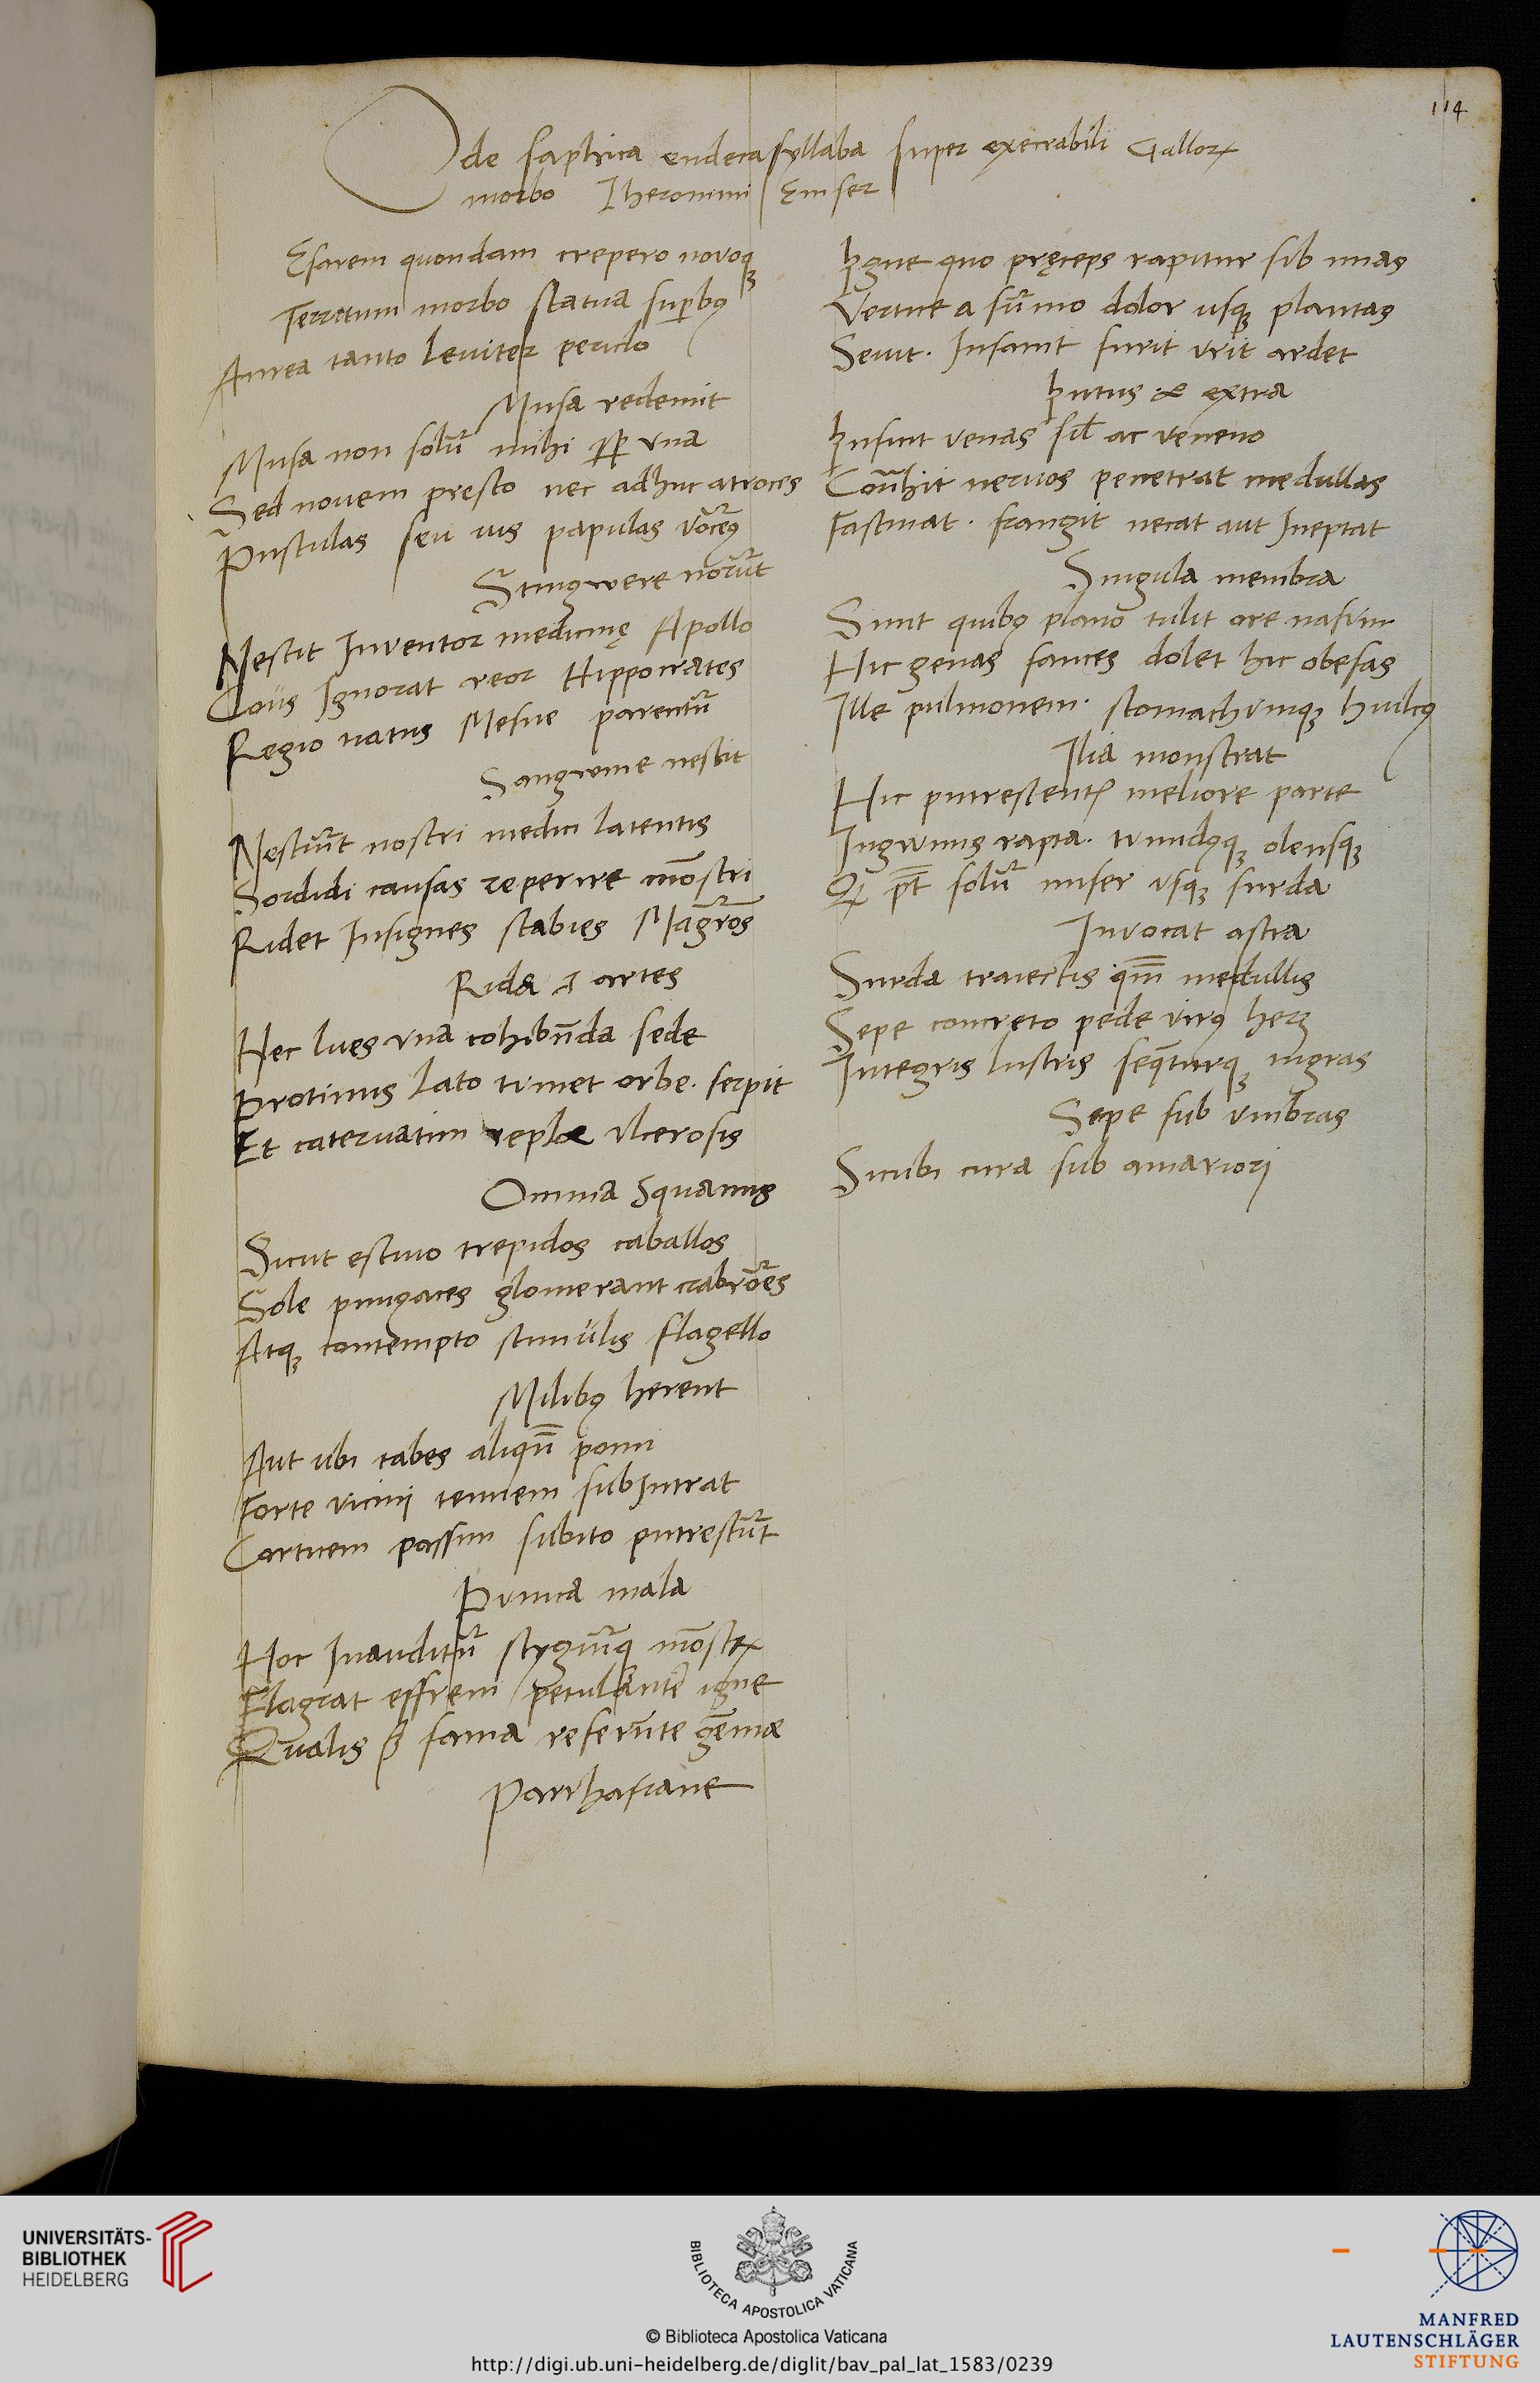 114
Ode saphica endecasyllaba super execrabili Gallorꝝ
morbo Iheronimi Emser
Esarem quondam crepero novoqꝫ
Territum morbo statua sup̱bꝯ
Aurea tanto leuiter periclo
Musa redemit
Musa non solū mihi una
Sed nouem presto nec adhuc atroces
Pustulas seu uis papulas
Stinguere norūt
Nescit Inventor medicinę Apollo
Cous Ignorat reor Hippocrates
Regio natus Mesue parentū
Sanguine nescit
Nesciūt nostri medici latentis
Sordidi causas reperire mōstri
Ridet Insignes scabies Magros
Ridet artes
Hec lues una cohibn̄da sede
Protinus lato timet orbe. serpit
Et cateruatim replet ulcerosis
Omnia squamis
Sicut estiuo trepidos caballos
Sole pungaces glomerant crabrōes
Atqꝫ contempto stimulis flagello
Milibꝯ herent
Aut ubi tabes aliqn̄ pomi
Forte vicinj tenuem subIntrat
Corticem passim subito putrescūt
Punica mala
Hoc Inauditū stygiūqꝫ mōstrꝝ
Flagrat effreni petulanter igne
Qualis fama referēte gēmæ
Parrhasiane
Igne quo pręceps rapitur sub imas
Vertice a sūmo dolor usqꝫ plantas
Seuit. Insanit furit urit ardet
Intus et extra
Inficit venas sil̄ ac veneno
Cōtrahit neruos penetrat medullas
Fascinat. frangit necat aut Ineptat
Singula membra
Sunt quibꝯ plano tulit ore nasum
Hic genas fauces dolet hic obesas
Ille pulmonem. stomachumqꝫ hiulcꝯ
Ilia monstrat
Hic putrescentꝭ meliore parte
Inguinis rapta. tumidꝯqꝫ olensqꝫ
solū miser usqꝫ surda
Invocat astra
Surda traiectis qm̄ medullis
Sepe concreto pede virꝯ heret
Integris lustris seqͣturqꝫ nigras
Sepe sub umbras
Sicubi cura sub amariorj
UNIVERSITÄTS-
BIBLIOTHEK
HEIDELBERG
BIBLIOTECA APOSTOLICA VATICANA
© Biblioteca Apostolica Vaticana
http://digi.ub.uni-heidelberg.de/diglit/bav_pal_lat_1583/0239
MANFRED
LAUTENSCHLÄGER
STIFTUNG